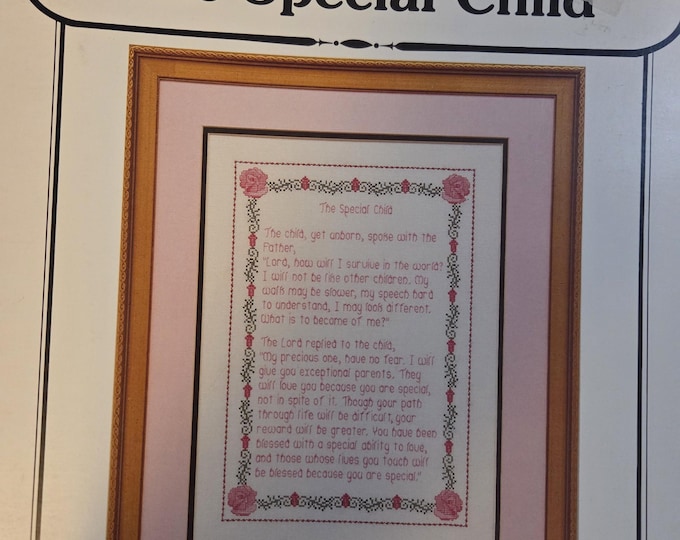 Special Child
The Special Child
The child, yet unborn, spoke with the
Father,
"Lord, how will I survive in the world?
I will not be like other children. My
walk may be slower, my speech hard
to understand, I may look different.
What is to become of me?"
The Lord replied to the child,
"My precious one, have no fear. I will
give you exceptional parents. They
will love you because you are special,
not in spite of it. Though your path
through life will be difficult, your
reward will be greater. You have been
blessed with a special ability to love,
and those whose lives you touch will
be blessed because you are special."